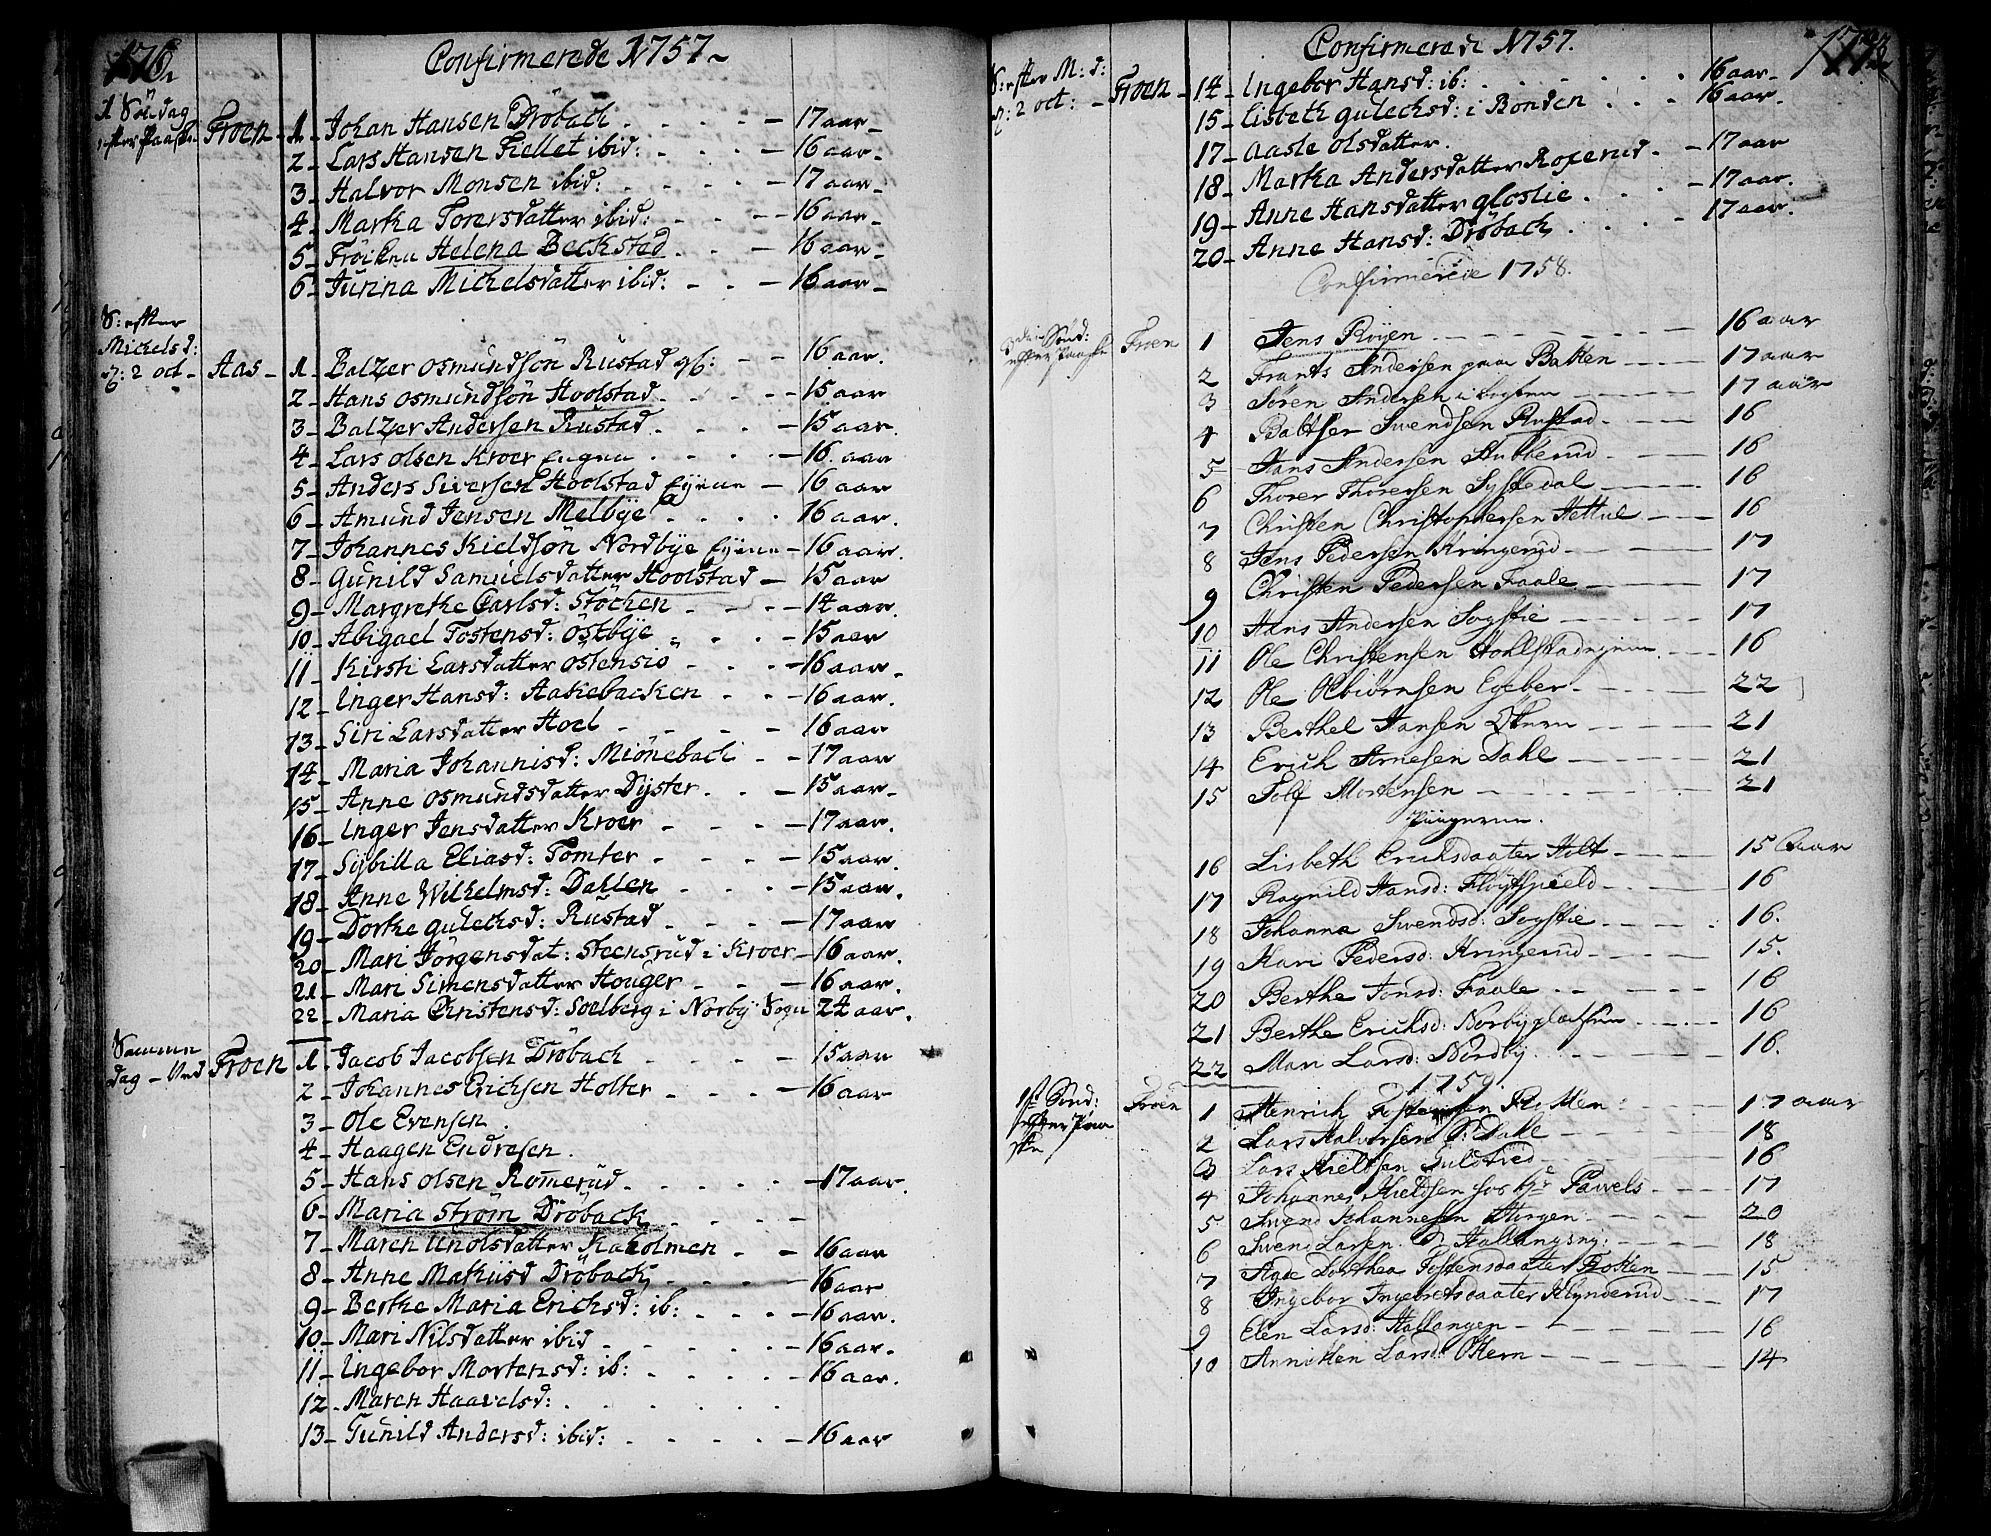 176.
Confirmerede 1757
1 Söndag
efter Paaske Froen 1 Johan Hansen Dröback 17 aar
2 Lars Hansen Fiellet ibid: 16 aar
3 Halvor Monsen ibid: 17 aar
4 Martha Torersdatter ibid: 16 aar
5 Fröiken Helena Beckstad 16 aar
6 Jurina Michelsdatter ibid: 16 aar
S: efter
Michelsd:
2 oct Aas 1 Balzer Osmundsön Rustad 16 aar.
2 Hans Osmundsön Hoolstad 15 aar
3 Balzer Andersen Rustad 15 aar.
4 Lars Olsen Kroer 16 aar
5 Anders Siversen Hoolstad Ejene 16 aar
6 Amund Jensen Melbye 16 aar.
7 Johannes Kieldsön Nordbye Ejene 16 aar.
8 Gunild Samuelsdatter Hoolstad 15 aar
9 Margrethe Carlsd: Stöcken 14 aar.
10 Abigael Tostensd: Östbye 15 aar
11 Kirsti Larsdatter Östensiö 16 aar.
12 Inger Hansd: Aakebacken 16 aar.
13 Siri Larsdatter Hoel 16 aar
14 Maria Johannisd: Miönebach 17 aar
15 Anne Osmundsdatter Dyster 15 aar
16 Inger Jensdatter Kroer 17 aar.
17 Sybilla Eliasd: Tomter 15 aar.
18 Anne Wilhelmsd: Dahlen 15 aar.
19 Dorthe Gulechsd: Rustad 17 aar
20 Mari Jörgensdat: Steensrud i Kroer 16 aar.
21 Mari Simensdatter Houger 16 aar.
22 Maria Christensd: Soelberg i Norby Sogn 24 aar.
Samme
dag Ved Froen 1 Jacob Jacobsen Dröback 15 aar
2 Johannes Erichsen Holter 16 aar
3 Ole Evensen.
4 Haagen Endresen.
5 Hans Olsen Romerud 17 aar.
6 Maria Ström Dröback
7 Maren Knolsdatter Kaholmen 16 aar
8 Anne Makiisd Dröback 16 aar
9 Berthe Maria Erichsd: ib: 16 aar.
10 Mari Nilsdatter ibid 16 aar.
11 Ingebor Mortensd: ib: 16 aar.
12 Maren Haavelsd:
13 Gunild Andersd: ibid: 16 aar
Confirmerede 1757.
S: efter M: d:
2 oct: Froen 14 Ingebor Hansd: ib: 16 aar
15 Lisbeth Gulechsd: i Bonden 16 aar.
17 Aasle Olsdatter. 17 aar
18 Martha Andersdatter Roperud 17 aar.
19 Anne Hansdatter Gloslie 17 aar.
20 Anne Hansd: Dröback
Confirmerede 1758.
Sönd:
efter Paaske Froen 1 Jens Röyen 16 aar
2 Frants Andersen paa Batten 17 aar
3 Sören Andersen i Sogten 17 aar
4 Baltser Svendsen Rustad 16
5 Hans Andersen Hubberud 16
6 Thorer Thoresen Syssedal 16
7 Christen Christophersen Hettue 16
8 Jens Pedersen Kringerud 17
9 Christen Pedersen Faale 17
10 Hans Andersen Sogstie 17
11 Ole Christensen Hohlstadejene 16
12 Ole Olbiörnsen Egeber 22
13 Berthel Hansen Ottern 21
14 Erich Arnesen Dahl 21
15 Tolf Mortensen 21
Piigerne.
16 Lisbeth Erichsdaater Hilt 15 Aar
17 Ragnild Hansd: Flöytspield 16
18 Johanna Swendsd: Sogstie 16.
19 Kari Pedersd: Kringerud 15.
20 Berthe Jonsd: Faale 16
21 Berthe Erichsd: Norbyplatsen 16
22 Mari Larsd: Nordby 16.
1759.
1st Sönd:
efter Paa
ske Froen 1 Henrich Tostensen Rotten 17 aar
2 Lars Halvorsen Dahl 18
3 Lars Kieldsen Guldbred 16
4 Johannes Kieldsen hos Hr Pavels 17
5 Swend Johannesen Stirgen 20
6 Swend Larsen Hallangsng: 18
7 Agde Dorthea Tostensdaater Rotten 15
8 Ingebor Ingebretsdaater Klynderud 17
9 Elen Larsd: Hallangen 16
10 Annichen Larsd: Ottern 14